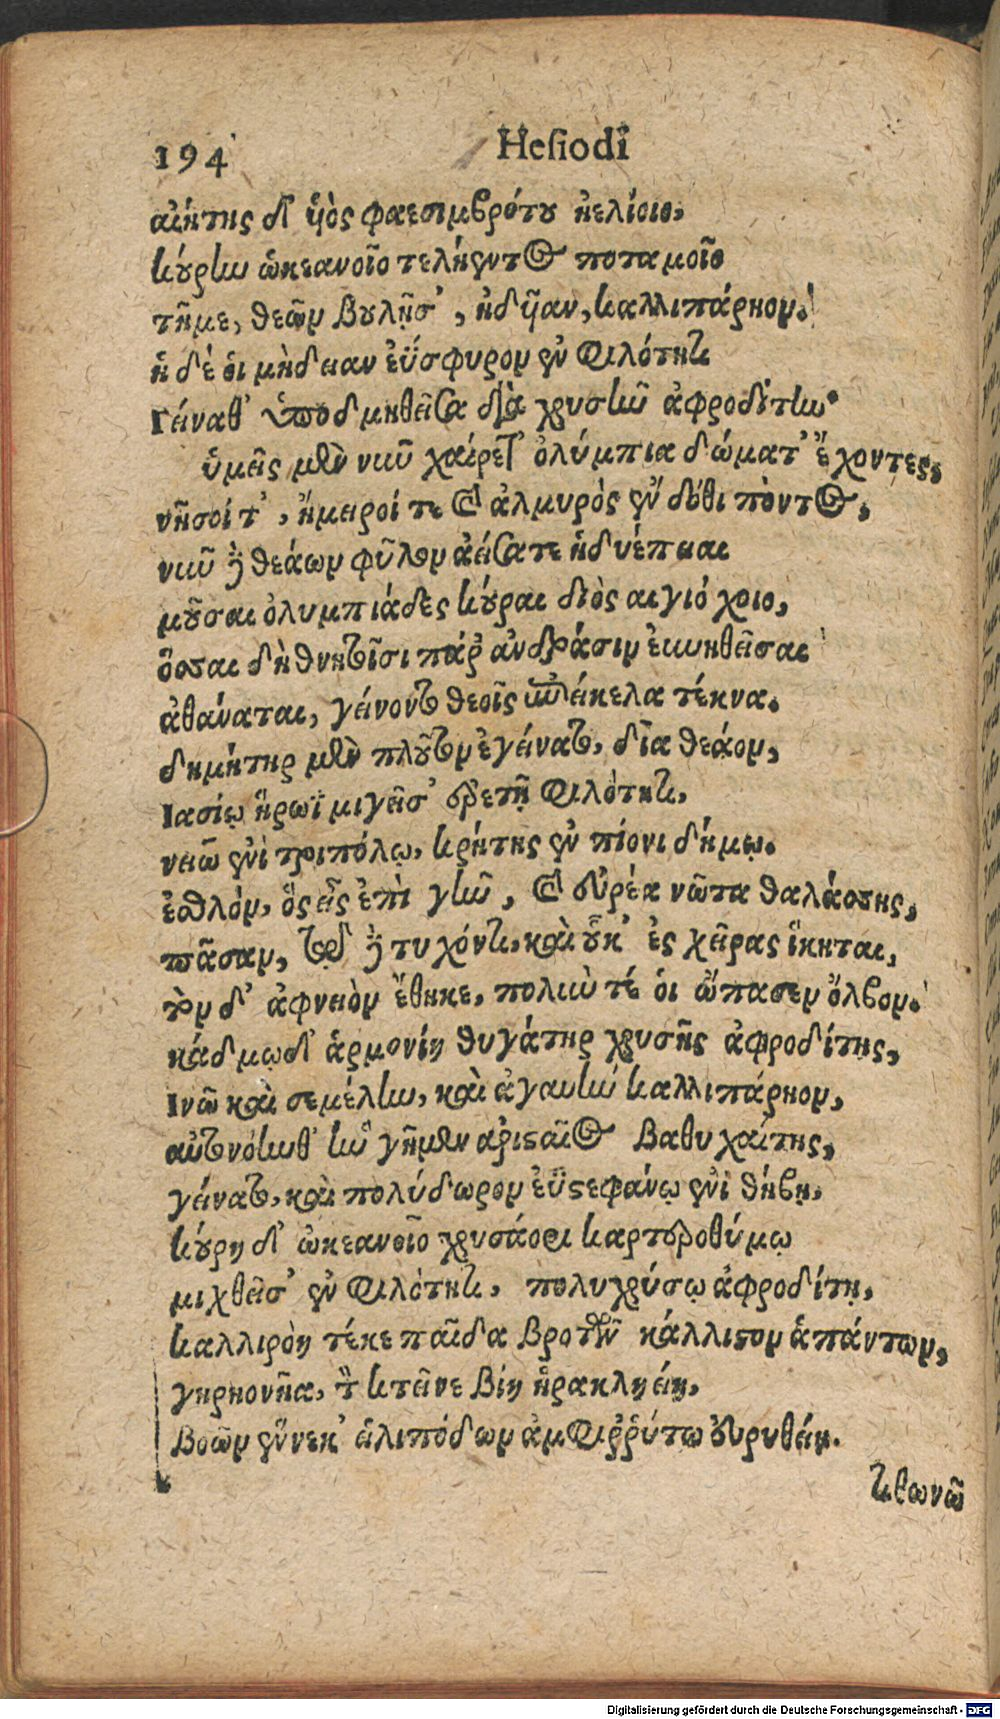 194 Hesiodi
αἰήτης δ' ὑὸς φαεσιμβρότου ἠελίοιο,
κούρην ὠκεανοῖο τελήεντος ποταμοῖο
τῆμε, θεῶν βουλῇσ', ἠδυῖαν, καλλιπάρηον.
ἡ δέ οἱ μήδειαν ἐΰσφυρον ἐν φιλότητι
Γείναθ' ὑποδμηθεῖσα διὰ χρυσῆν ἀφροδίτην.
ὑμεῖς μὲν νῦν χαίρετ' ὀλύμπια δώματ' ἔχοντες,
νῆσοί τ', ἤπειροί τε καὶ ἁλμυρὸς ἔνδοθι πόντος,
νῦν δὲ θεάων φῦλον ἀείσατε ἡδυέπειαι
μοῦσαι ὀλυμπιάδες κούραι διὸς αἰγιόχοιο,
ὅσσαι δὴ θνητοῖσι παρ' ἀνδράσιν εὐνηθεῖσαι
ἀθάναται, γείνοντο θεοῖς ἐπιείκελα τέκνα.
δημήτηρ μὲν πλοῦτον ἐγείνατο, δῖα θεάον,
Ιασίῳ ἥρωϊ μιγεῖσ' ἐρετῇ φιλότητι,
νειῶ ἐνὶ τριπόλῳ, κρήτης ἐν πίονι δήμῳ.
ἐσθλόν, ὃς εἶς ἐπὶ γῆν, καὶ εὐρέα νῶτα θαλάσσης,
πᾶσαν, τῷ δὲ τυχόντι, καὶ οὗκ' ἐς χεῖρας ἵκηται,
τὸν δ' ἀφνειὸν ἔθηκε, πολὺν τέ οἱ ὤπασεν ὄλβον.
κάδμῳ δ' ἁρμονίη θυγάτηρ χρυσῆς ἀφροδίτης,
Ινῶ καὶ σεμέλην, καὶ ἀγαυὴν καλλιπάρηον,
αὐτονόην θ' ἣν γῆμεν ἀρισαῖος βαθυχαίτης,
γείνατο, καὶ πολύδωρον ἐϋστεφάνῳ ἐνὶ θήβῃ,
κούρη δ' ὠκεανοῖο χρυσάορι καρτεροθύμῳ
μιχθεῖσ' ἐν φιλότητι, πολυχρύσῳ ἀφροδίτῃ,
καλλιρόη τέκε παῖδα βροτῶν κάλλιστον ἁπάντων,
γηρηονῆα, τὸν κτεῖνε βίη ἡρακληείη,
βοῶν ἕνεκ' εἱλιπόδων ἀμφιῤῥύτῳ ἐυρυθείη.
τιθωνῶ
Digitalisierung gefördert durch die Deutsche Forschungsgemeinschaft - DFG